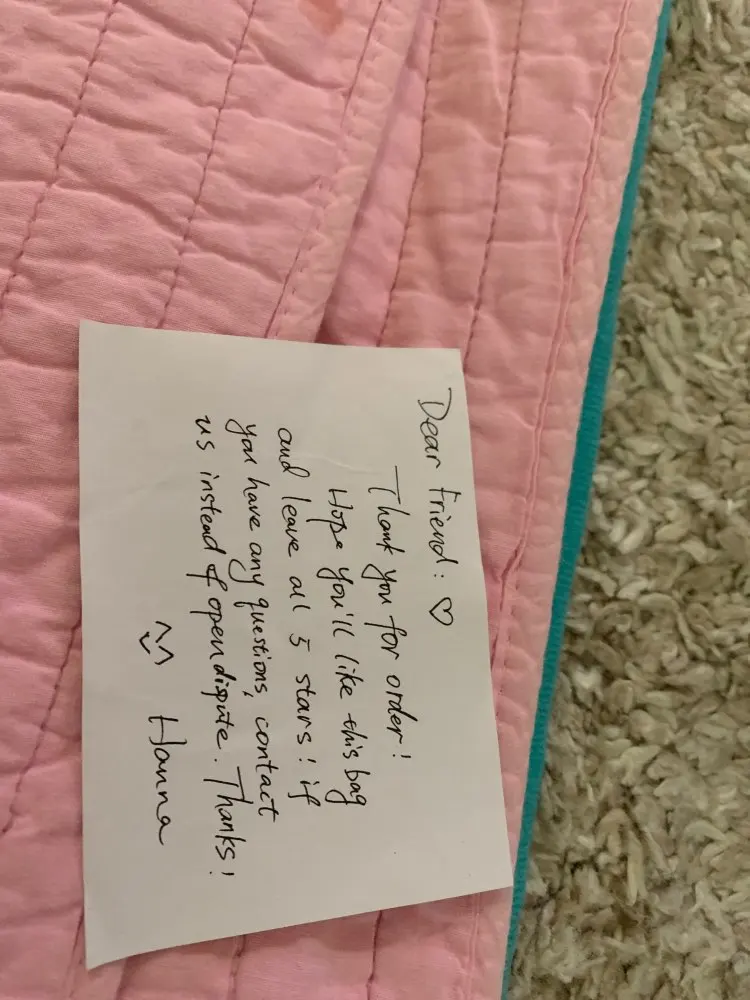 Dear friend: ♡
Thank you for order!
Hope you'll like this bag
and leave all 5 stars! if
you have any questions, contact
us instead of open dispute. Thanks!
Hanna